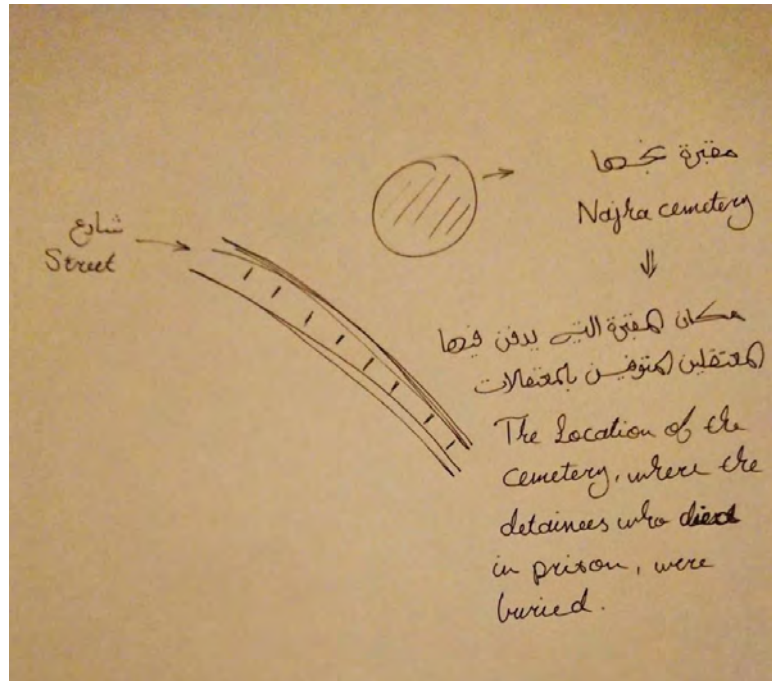 مقبرة نجها
Najha cemetery
شارع
Street
مكان المقبرة التي يدفن فيها
المعتقلين المتوفين بالمعتقلات
The Location of the
cemetery, where the
detainees who died
in prison, were
buried.